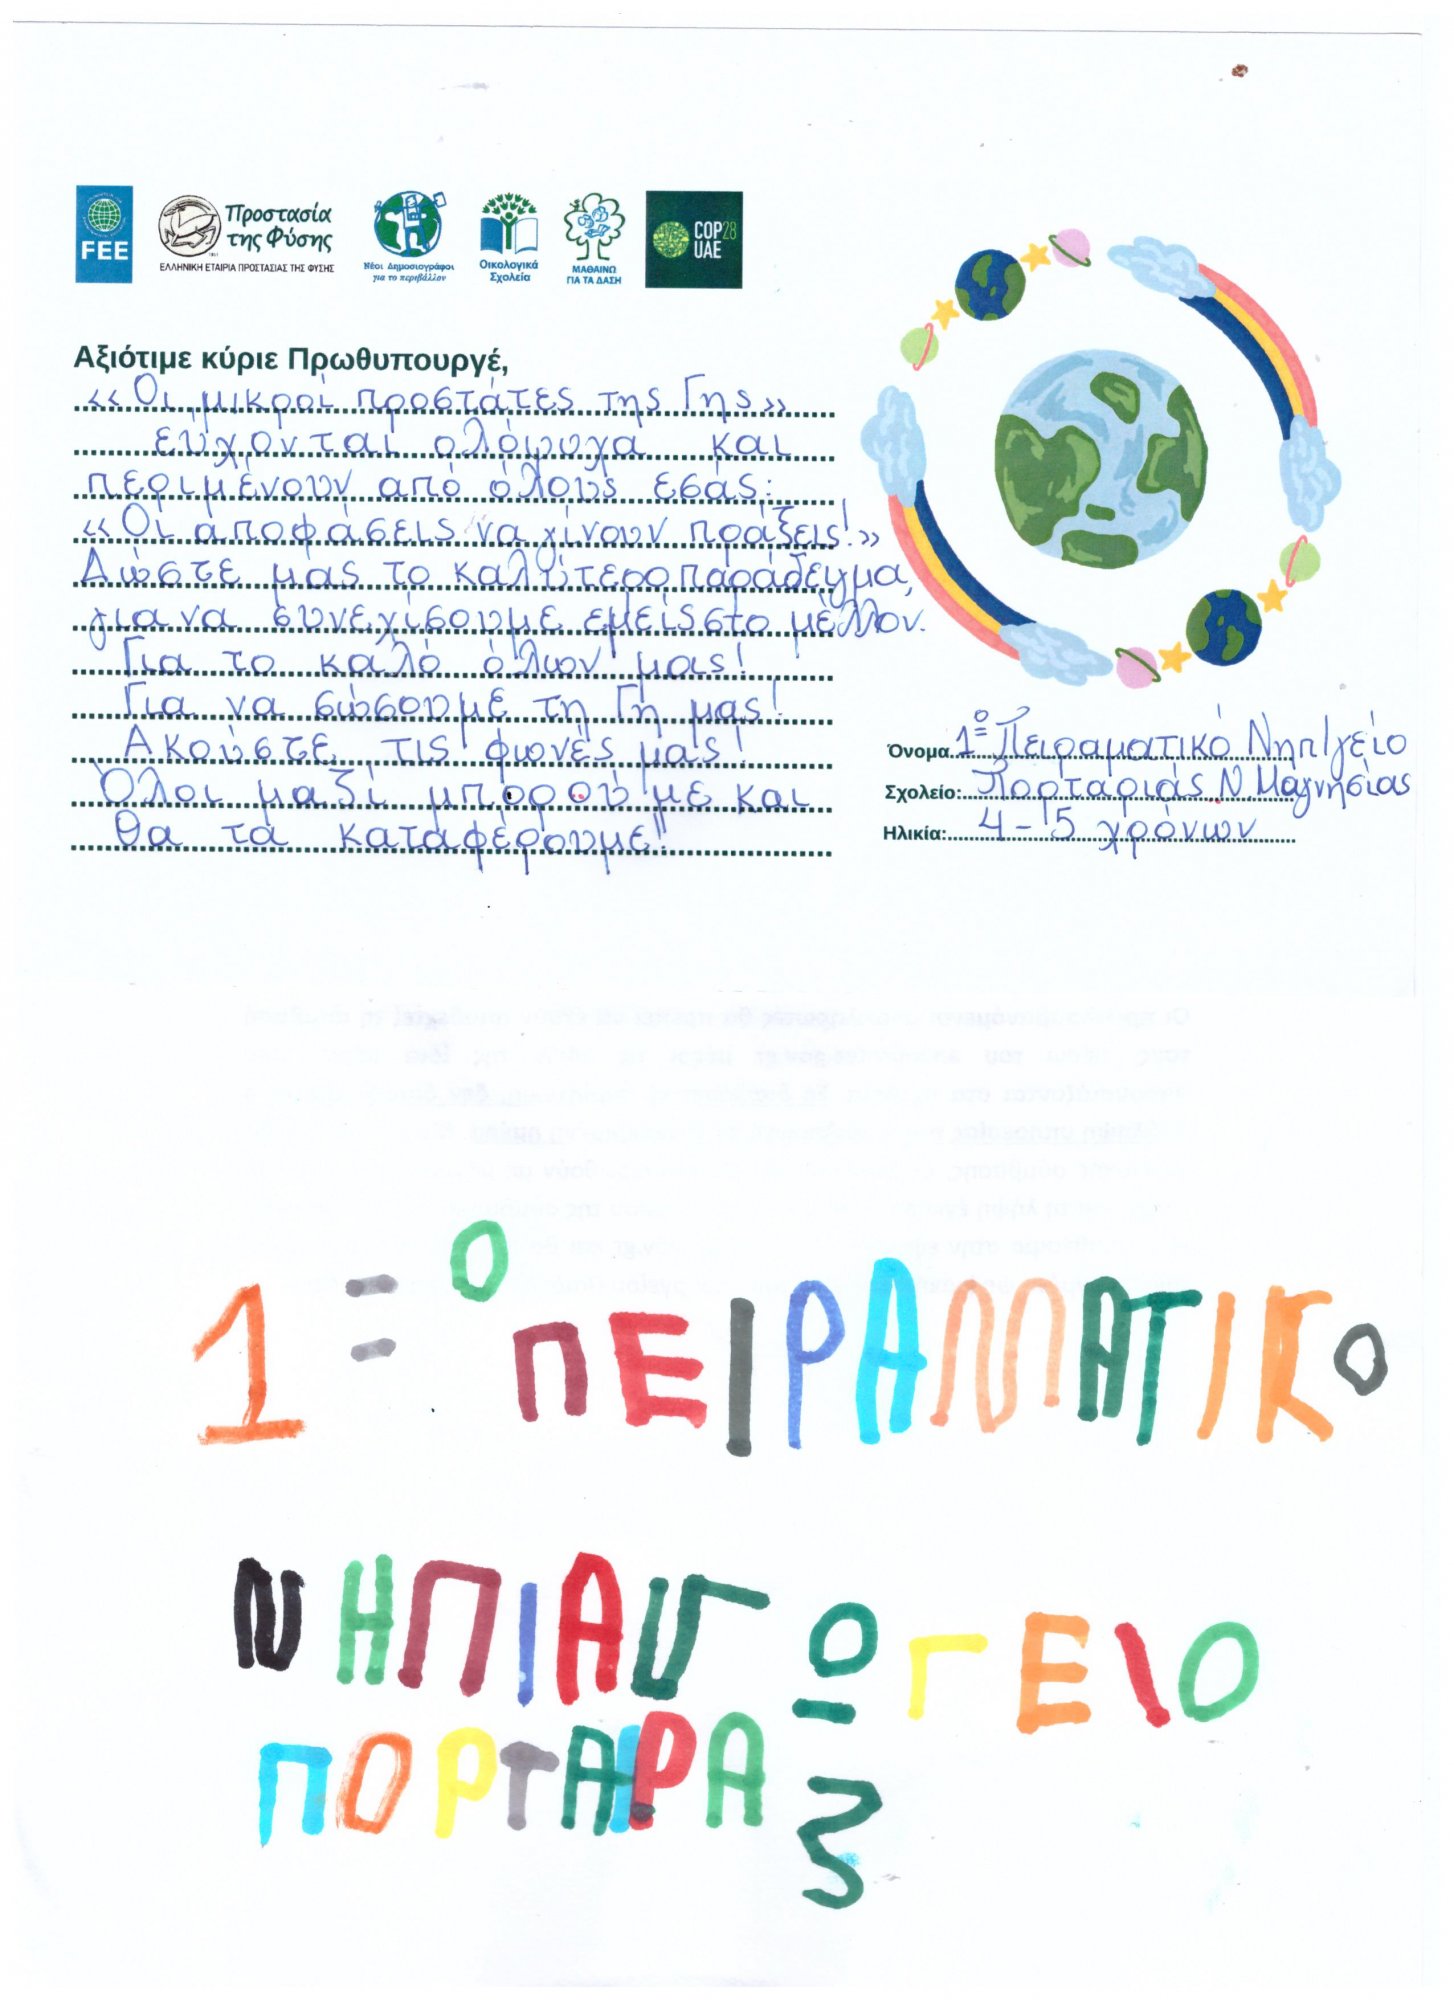 FEE
Προστασία
της Φύσης
1951
ΕΛΛΗΝΙΚΗ ΕΤΑΙΡΙΑ ΠΡΟΣΤΑΣΙΑΣ ΤΗΣ ΦΥΣΗΣ
Νέοι Δημοσιογράφοι
για το περιβάλλον
Οικολογικά
Σχολεία
ΜΑΘΑΙΝΩ
ΓΙΑ ΤΑ ΔΑΣΗ
COP28
UAE
Αξιότιμε κύριε Πρωθυπουργέ,
«Οι μικροί προστάτες της Γης»
εύχονται ολόψυχα και
περιμένουν από όλους εσάς:
«Οι αποφάσεις να γίνουν πράξεις!»
Δώστε μας το καλύτερο παράδειγμα,
για να συνεχίσουμε εμείς στο μέλλον.
Για το καλό όλων μας!
Για να σώσουμε τη Γη μας!
Ακούστε τις φωνές μας!
Όλοι μαζί μπορούμε και
θα τα καταφέρουμε!!
Όνομα 1ο Πειραματικό Νηπ/γείο
Σχολείο: Πορταριάς Ν. Μαγνησίας
Ηλικία: 4-5 χρόνων
1 = Ο ΠΕΙΡΑΜΑΤΙΚΟ
ΝΗΠΙΑΓΩΓΕΙΟ